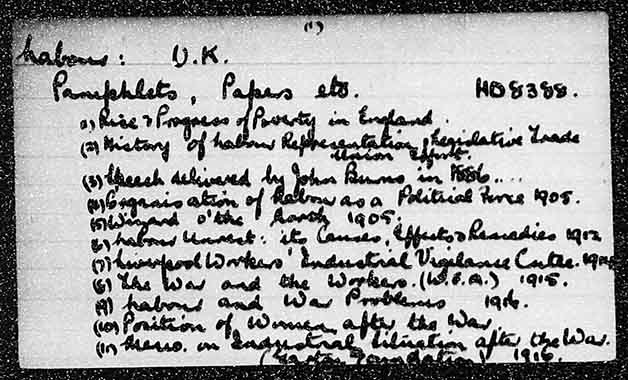 (1)
Labour: U.K.
Pamphlets, Papers etc. HD8388.
(1) Rise & Progress of Poverty in England.
(2) History of Labour Representation & Legislative Trade
Union Effort.
(3) Speech delivered by John Burns in 1886....
(4) Organisation of Labour as a Political Force 1905.
(5) Wizard o' the North 1905.
(6) Labour Unrest: its Causes, Effects & Remedies 1912
(7) Liverpool Workers' Industrial Vigilance Cttee.
(8) The War and the Workers. (W.E.A.) 1915.
(9) Labour and War Problems 1916.
(10) Position of Women after the War.
(11) Memo. on Industrial Situation after the War.
(Garton Foundation) 1916.